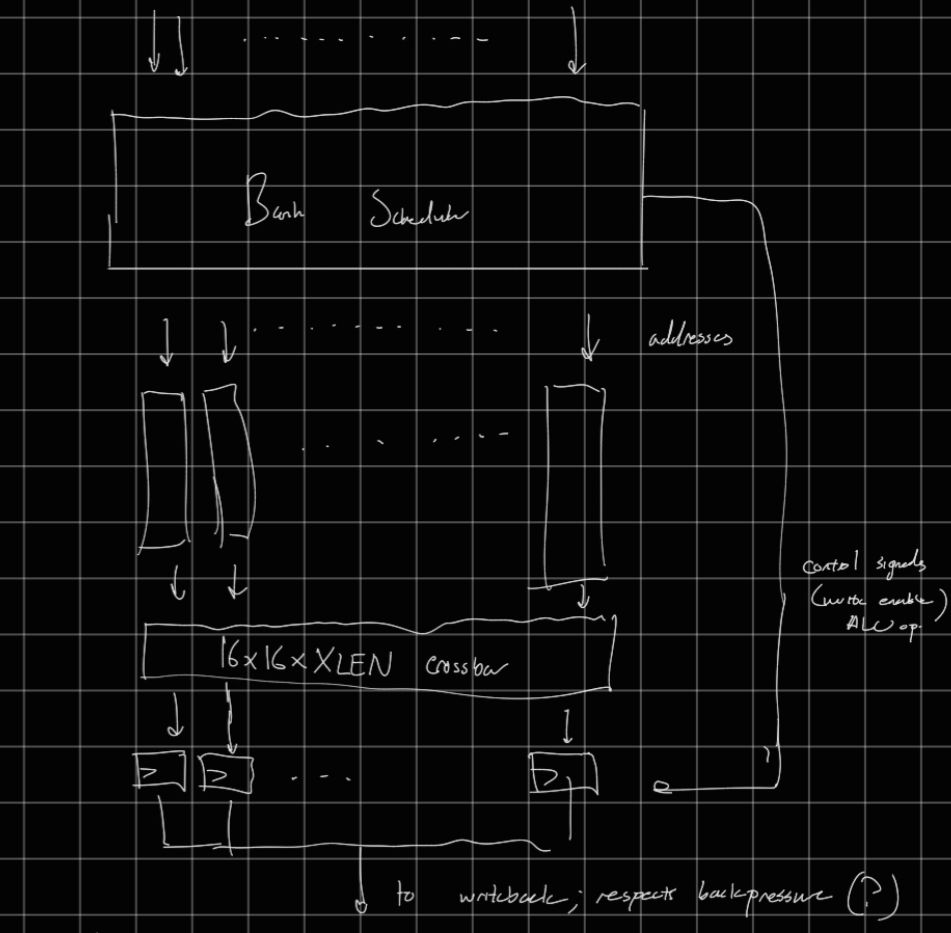 Bank Scheduler
addresses
control signals
(write enable)
ALU op.
16x16xXLEN crossbar
to writeback; respects backpressure (?)